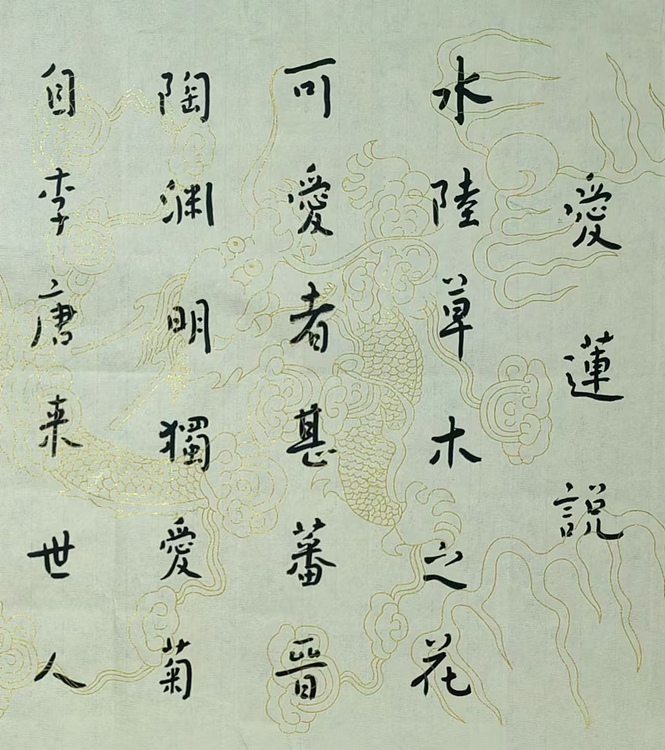 愛蓮説
水陸草木之花
可愛者甚蕃晉
陶渊明獨愛菊
自李唐来世人